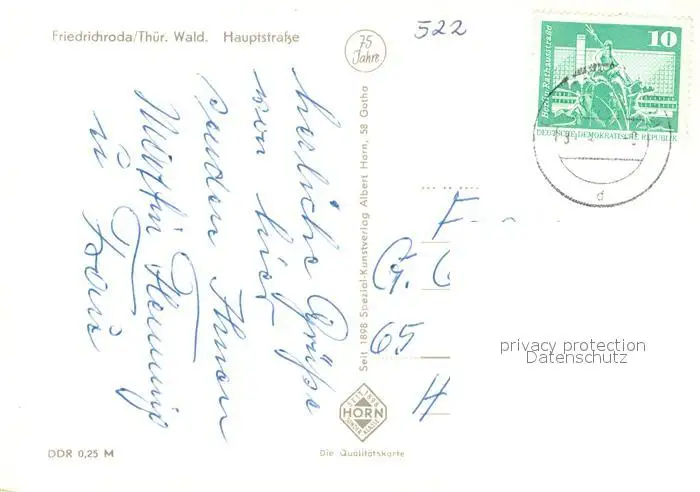 Friedrichroda/Thür. Wald. Hauptstraße
75
Jahre
522
Berlin-Rathausstraße
10
DEUTSCHE DEMOKRATISCHE REPUBLIK
d
herliche Grüße
von hier
senden Ihnen
Flemmig
u
Seit 1898 Spezial-Kunstverlag Albert Horn, 58 Gotha
F
G.
65
H
privacy protection
Datenschutz
SEIT 1898
HORN
Die Qualitätskarte
DDR 0,25 M